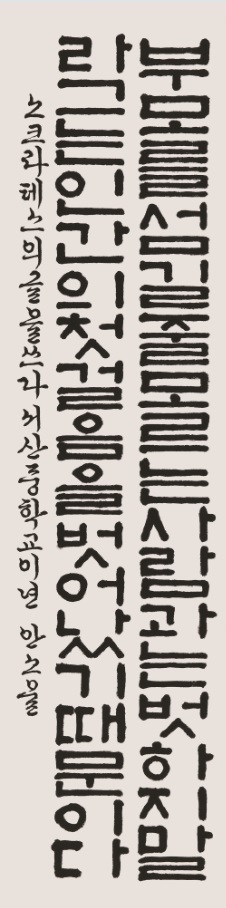 부모를섬길줄모르는사람과는벗하지말
라그는인간의첫걸음을벗어났기때문이다
소크라테스의글을쓰다 서신중학교이년